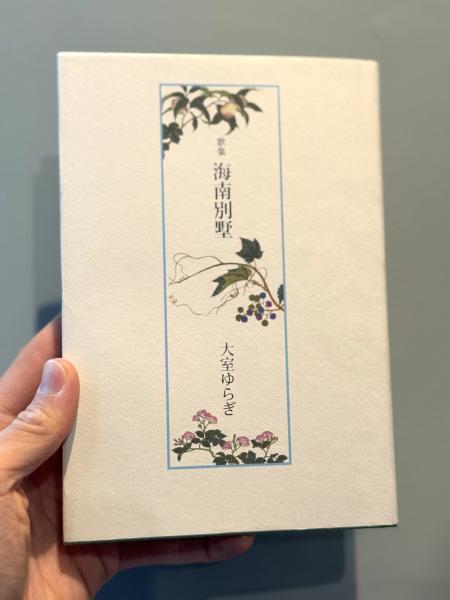 歌集
海南別墅
大室ゆらぎ